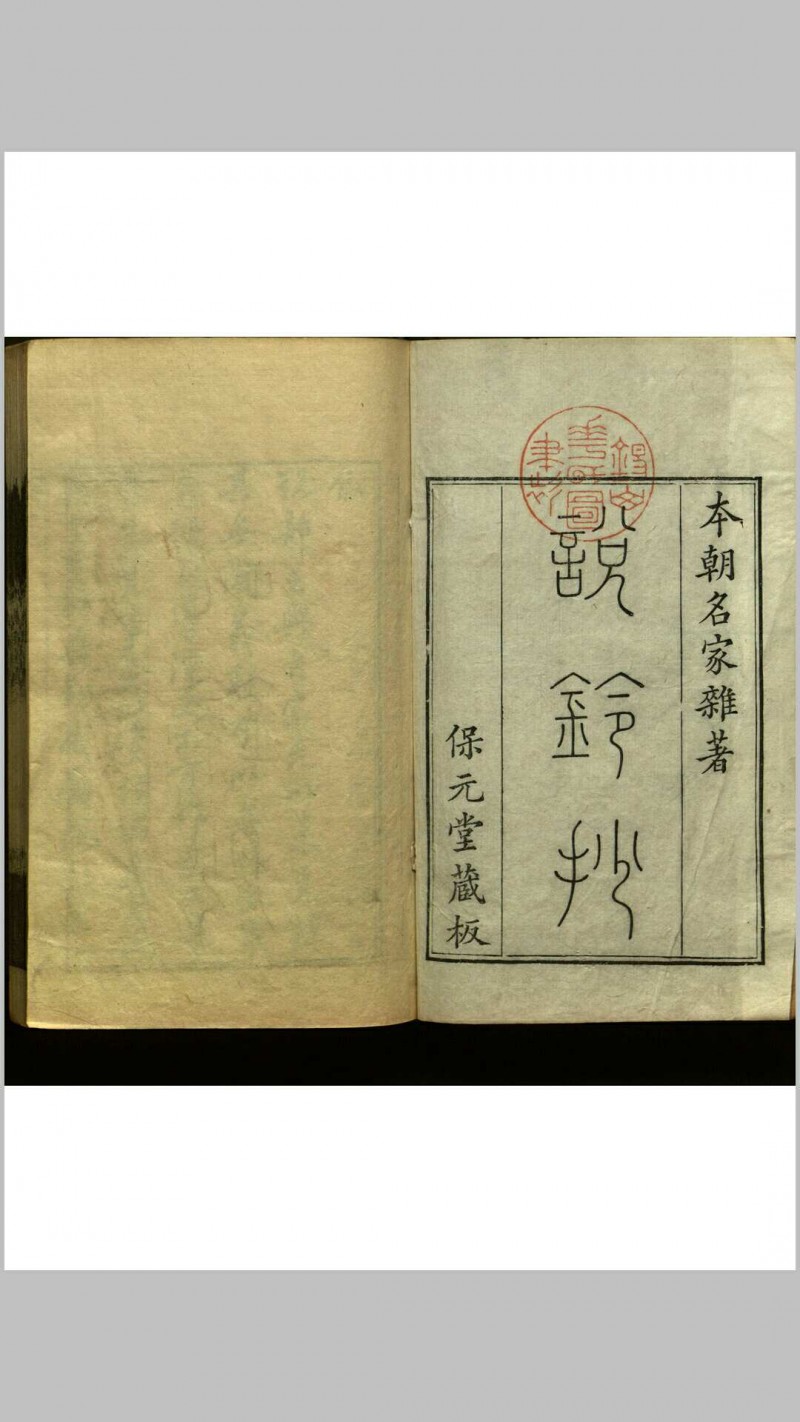 本朝名家雜著
說鈴抄
保元堂藏板